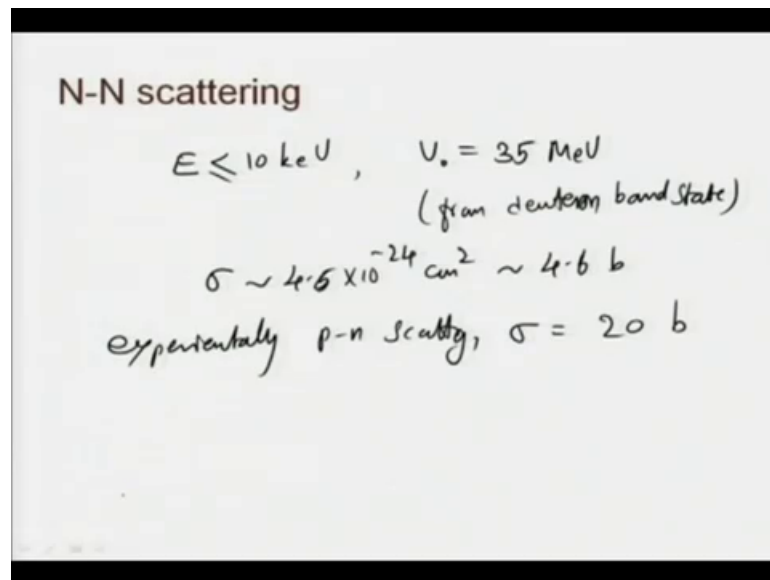 N-N scattering
E ⩽ 10 keV, V₀ = 35 MeV
(from deuteron bound state)
σ ~ 4.6 × 10⁻²⁴ cm² ~ 4.6 b
experientaly p-n scattg, σ = 20 b